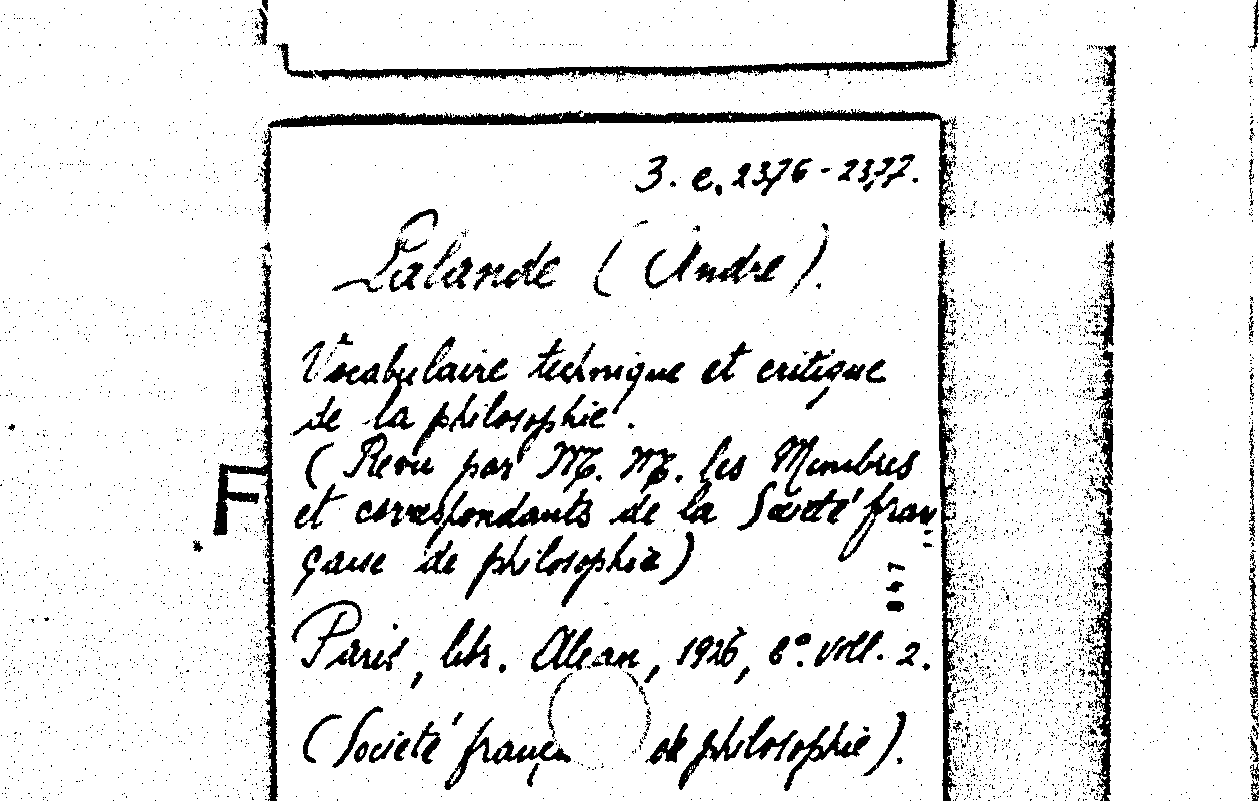 3. e. 2376-2377.
Lalande (Andre).
Vocabulaire technique et critique
de la philosophie.
(Revu par M. M. les Membres
et correspondants de la Societé fran
F
çaise de philosophie)
Paris, libr. Alcan, 1926, 8°. voll. 2.
(Societé frança de philosophie).